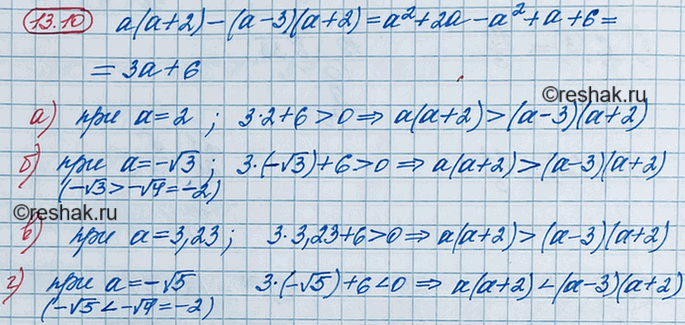 13.10 a(a+2)-(a-3)(a+2)=a²+2a-a²+a+6=
=3a+6
©reshak.ru
а) при a=2; 3·2+6>0⇒a(a+2)>(a-3)(a+2)
б) при a=-√3; 3·(-√3)+6>0⇒a(a+2)>(a-3)(a+2)
(-√3>-√4=-2)
©reshak.ru
в) при a=3,23; 3·3,23+6>0⇒a(a+2)>(a-3)(a+2)
г) при a=-√5 3·(-√5)+6<0⇒a(a+2)<(a-3)(a+2)
(-√5<-√4=-2)
©reshak.ru